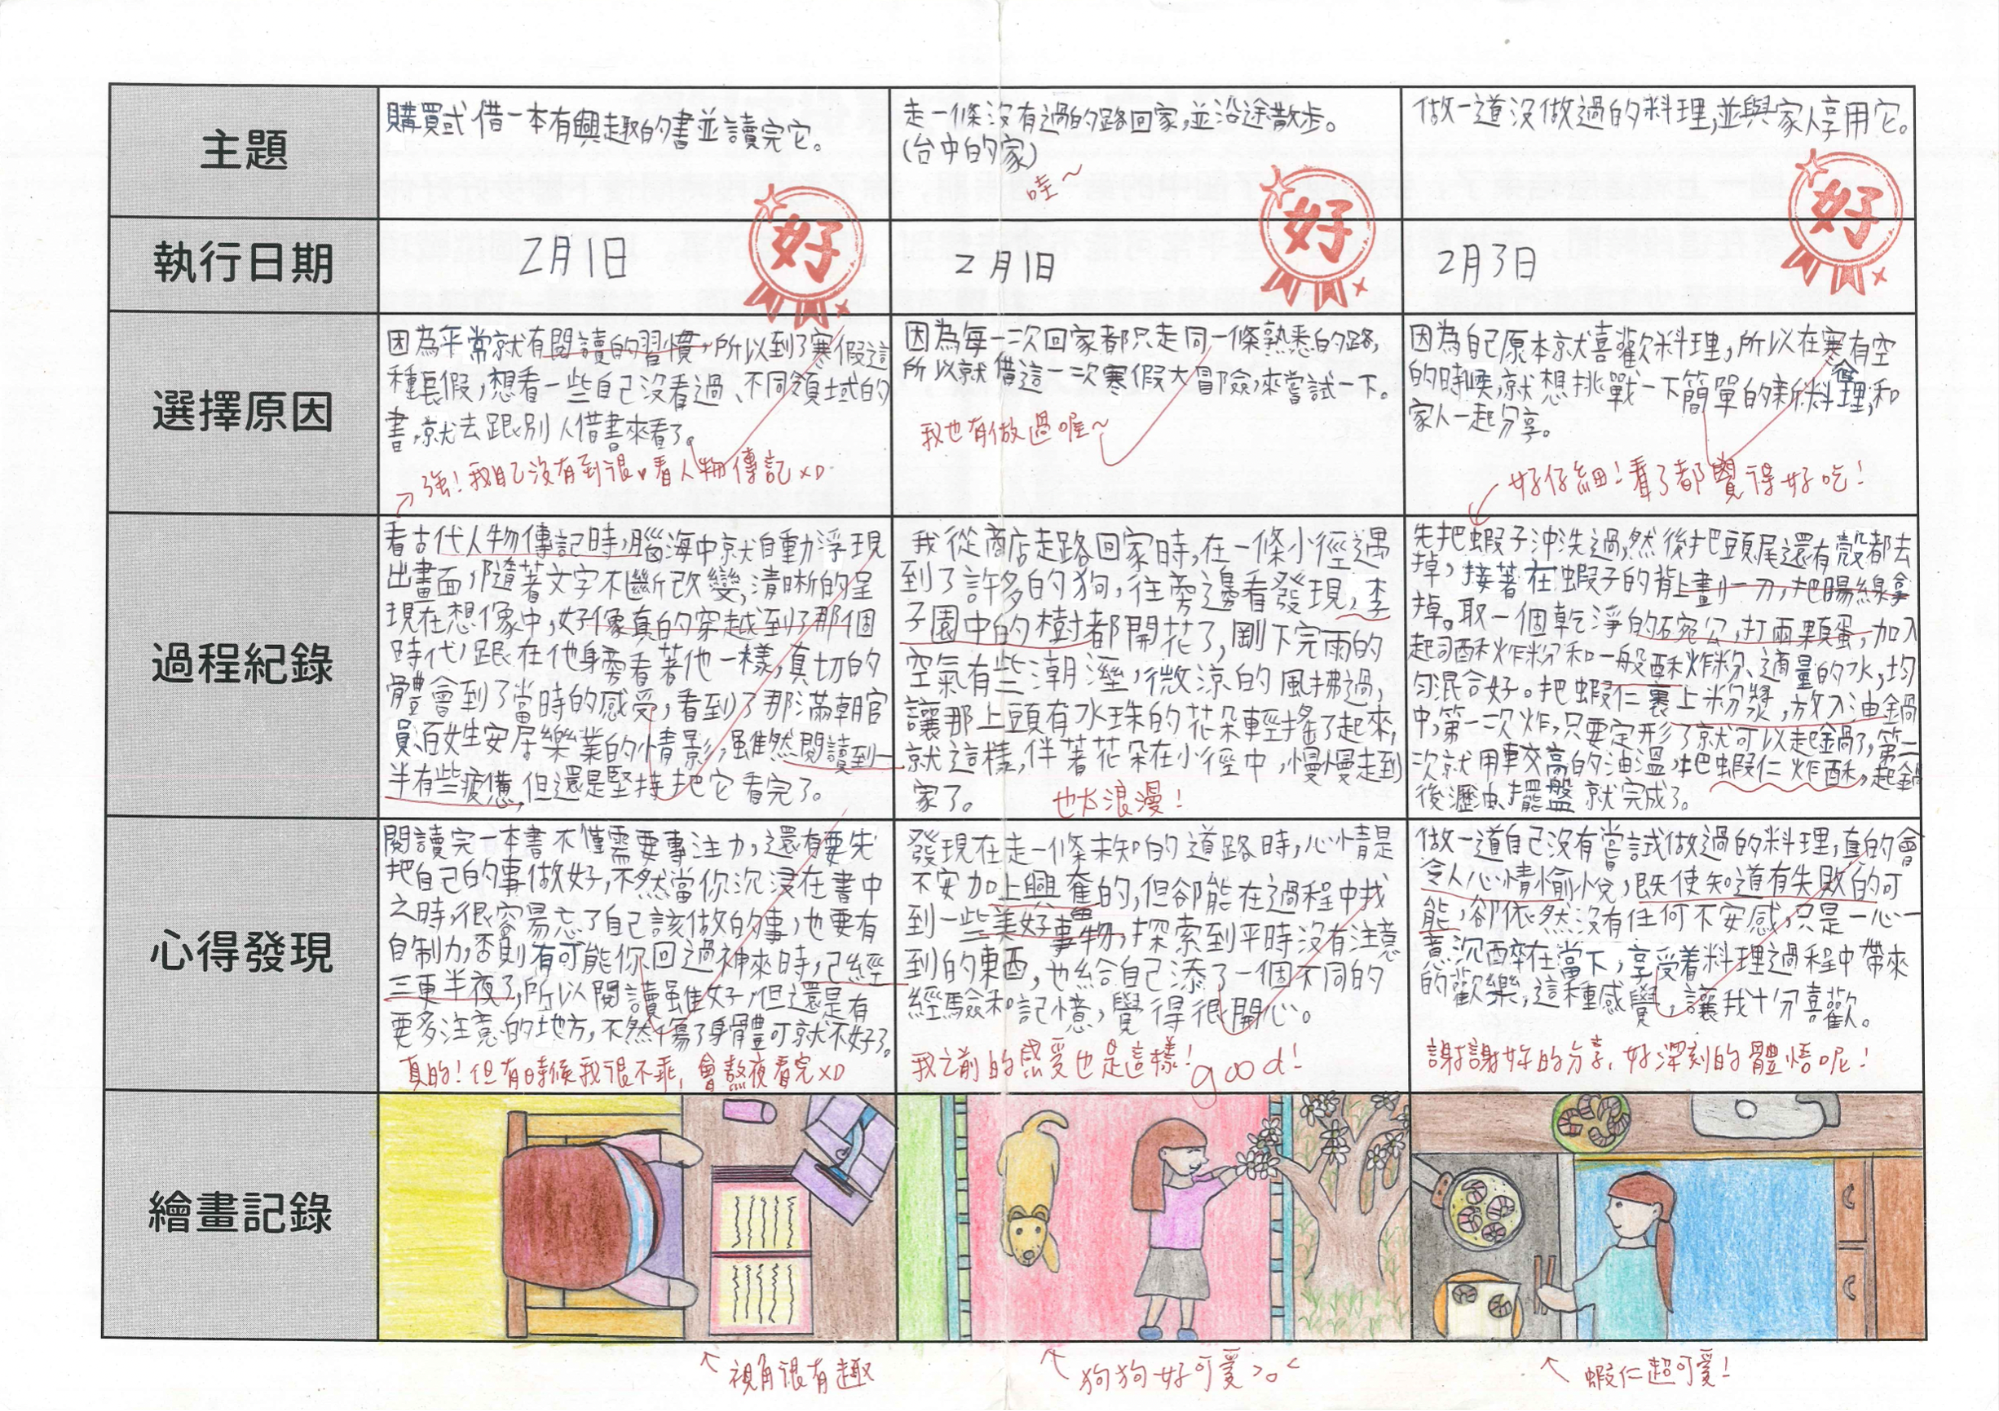 主題
購買或借一本有興趣的書並讀完它。
走一條沒有過的路回家,並沿途散步。
(台中的家)
哇~
做一道沒做過的料理,並與家人享用它。
執行日期
2月1日
好
2月1日
好
2月3日
好
選擇原因
因為平常就有閱讀的習慣,所以到了寒假這
種長假,想看一些自己沒看過、不同領域的
書,就去跟別人借書來看了。
強!我自己沒有到很♥看人物傳記XD
因為每一次回家都只走同一條熟悉的路,
所以就借這一次寒假大冒險,來嘗試一下。
我也有做過喔~
因為自己原本就喜歡料理,所以在寒假有空
的時候,就想挑戰一下簡單的新料理,和
家人一起分享。
好仔細!看了都覺得好吃!
過程紀錄
看古代人物傳記時,腦海中就自動浮現
出畫面,隨著文字不斷改變,清晰的呈
現在想像中,好像真的穿越到了那個
時代,跟在他身旁看著他一樣,真切的
體會到了當時的感受,看到了那滿朝官
員、百姓安居樂業的情影,雖然閱讀到一
半有些疲憊,但還是堅持把它看完了。
我從商店走路回家時,在一條小徑遇
到了許多的狗,往旁邊看發現,李
子園中的樹都開花了,剛下完雨的
空氣有些潮溼,微涼的風拂過,
讓那上頭有水珠的花朵輕搖了起來,
就這樣,伴著花朵在小徑中,慢慢走到
家了。
也太浪漫!
先把蝦子沖洗過,然後把頭尾還有殼都去
掉,接著在蝦子的背上畫一刀,把腸線拿
掉。取一個乾淨的碗公,打兩顆蛋,加入
起司酥炸粉和一般酥炸粉、適量的水,均
勻混合好。把蝦仁裹上粉漿,放入油鍋
中,第一次炸,只要定形了就可以起鍋了,第二
次就用較高的油溫,把蝦仁炸酥,起鍋
後瀝油、擺盤就完成了。
心得發現
閱讀完一本書不僅需要專注力,還有要先
把自己的事做好,不然當你沉浸在書中
之時,很容易忘了自己該做的事,也要有
自制力,否則有可能你回過神來時,已經
三更半夜了,所以閱讀雖好,但還是有
要多注意的地方,不然傷了身體可就不好了。
真的!但有時候我很不乖,會熬夜看完XD
發現在走一條未知的道路時,心情是
不安加上興奮的,但卻能在過程中找
到一些美好事物,探索到平時沒有注意
到的東西,也給自己添了一個不同的
經驗和記憶,覺得很開心。
我之前的感受也是這樣!good!
做一道自己沒有嘗試做過的料理,真的會
令人心情愉悅,既使知道有失敗的可
能,卻依然沒有任何不安感,只是一心一
意沉醉在當下,享受着料理過程中帶來
的歡樂,這種感覺,讓我十分喜歡。
謝謝妳的分享,好深刻的體悟呢!
繪畫記錄
視角很有趣
狗狗好可愛>o<
蝦仁超可愛!